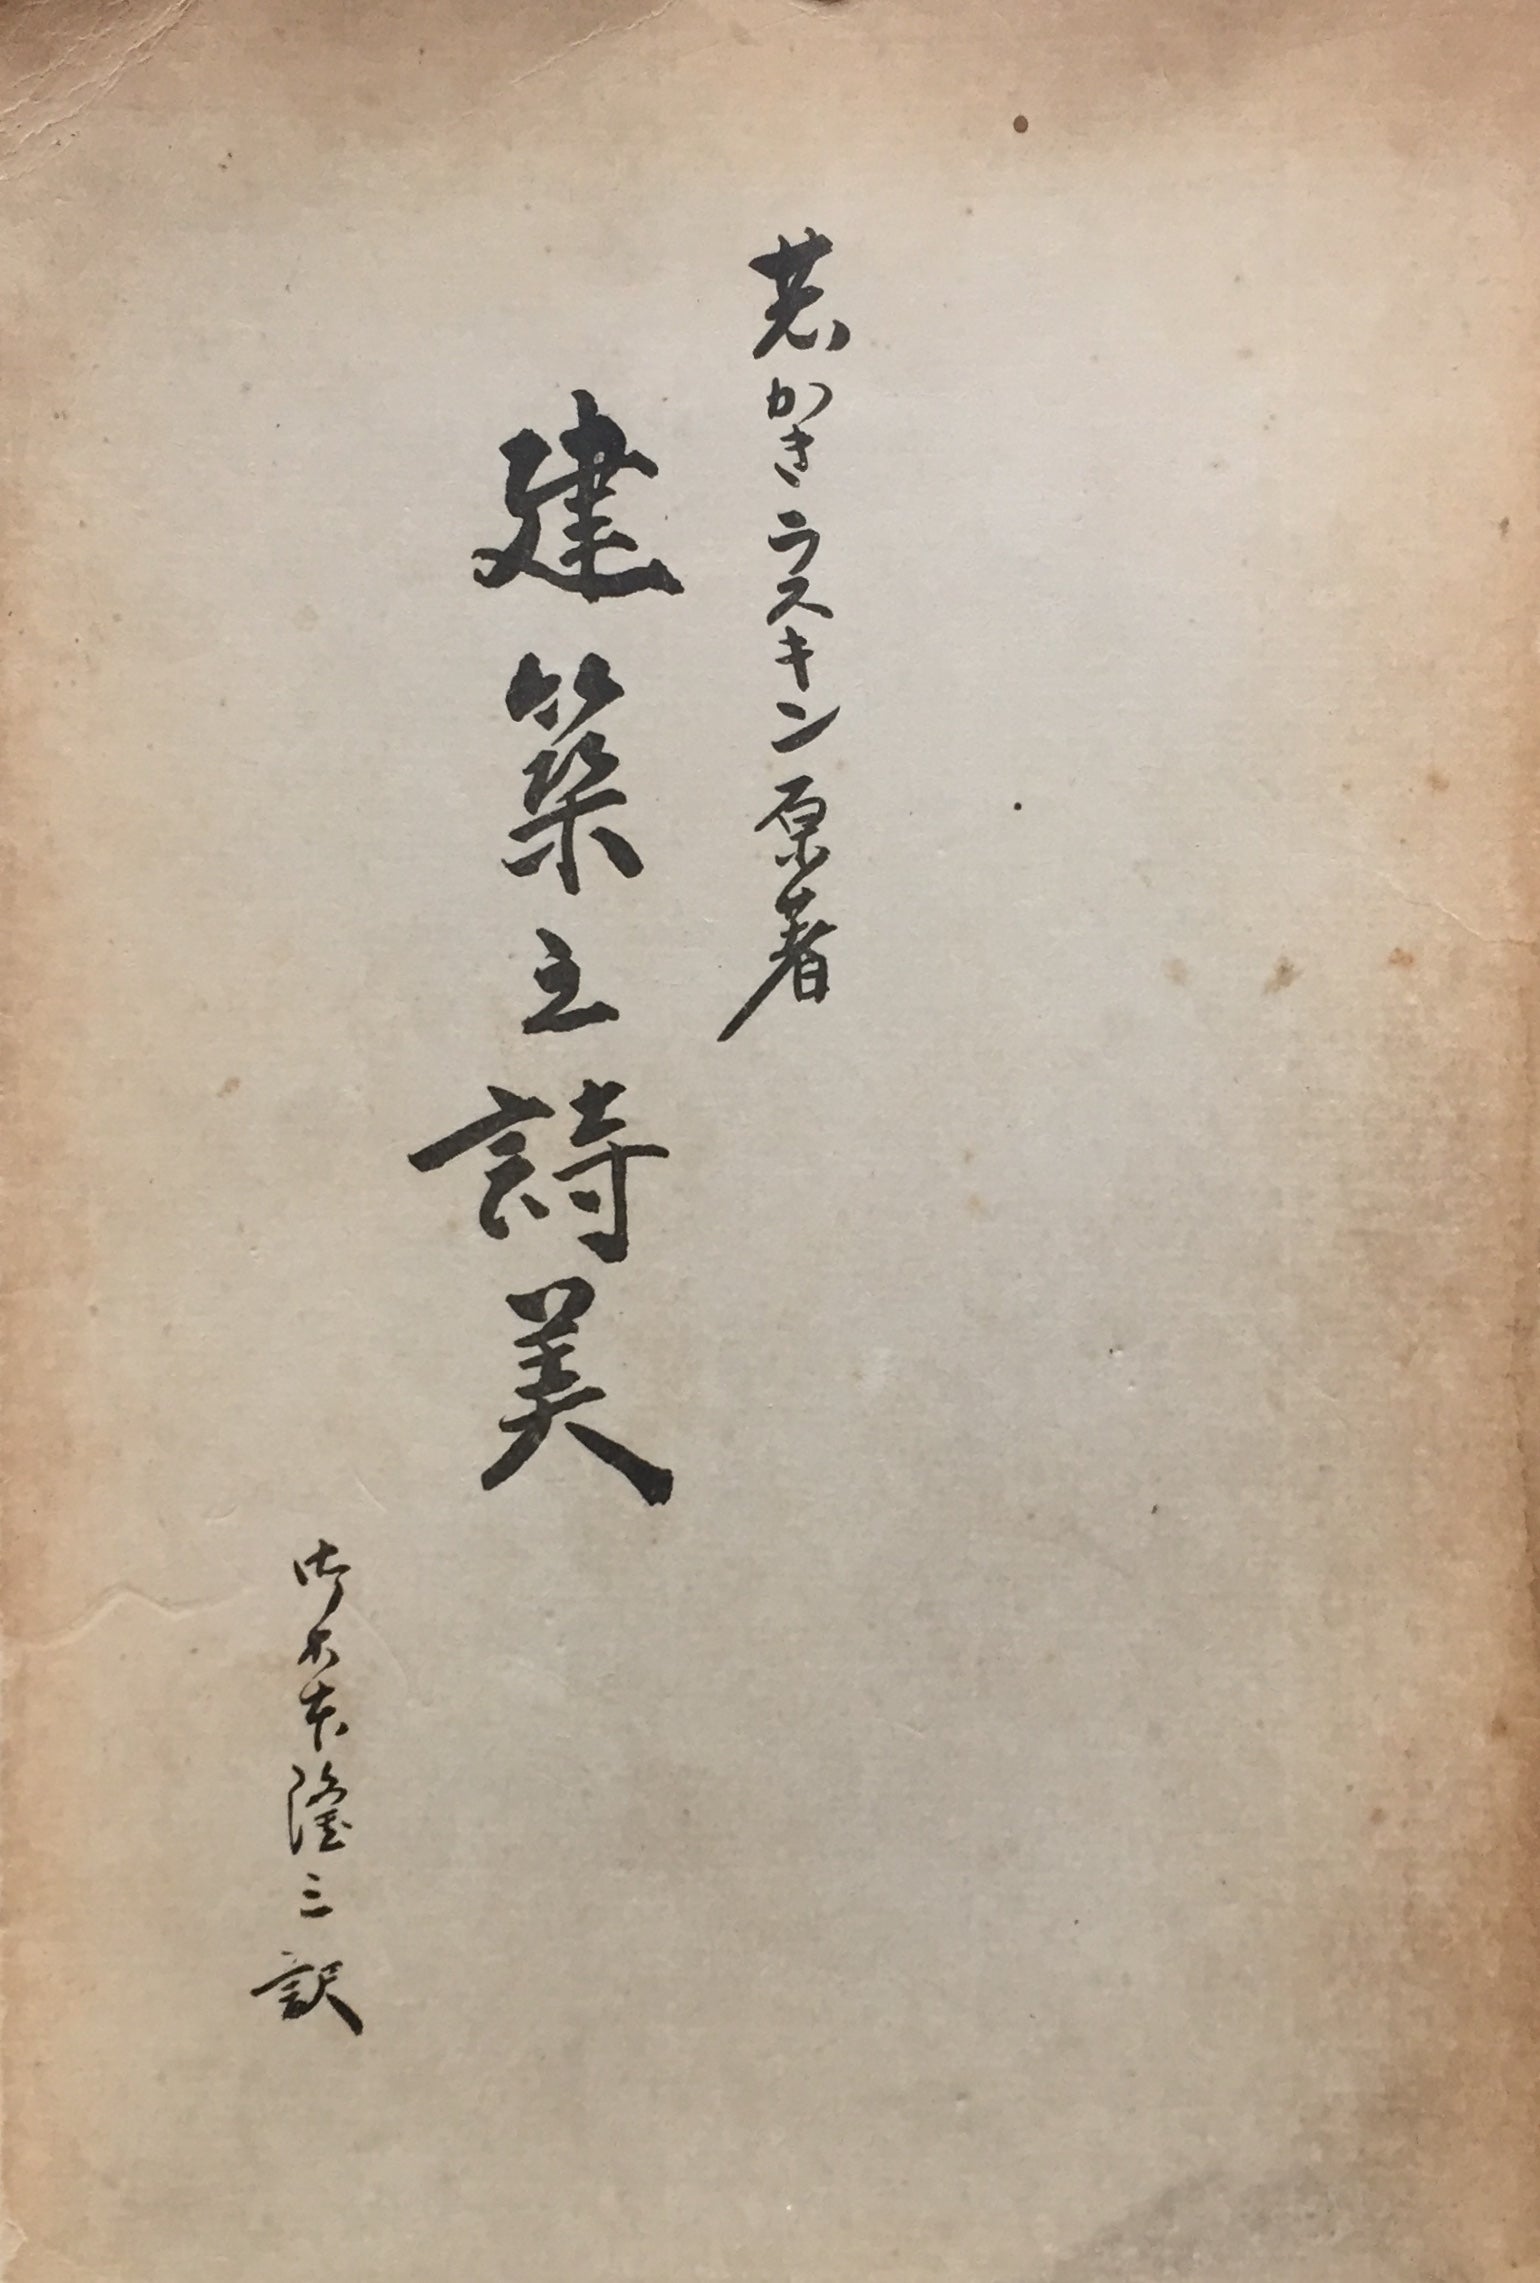 若かきラスキン原著
建築之詩美
御木本隆三訳